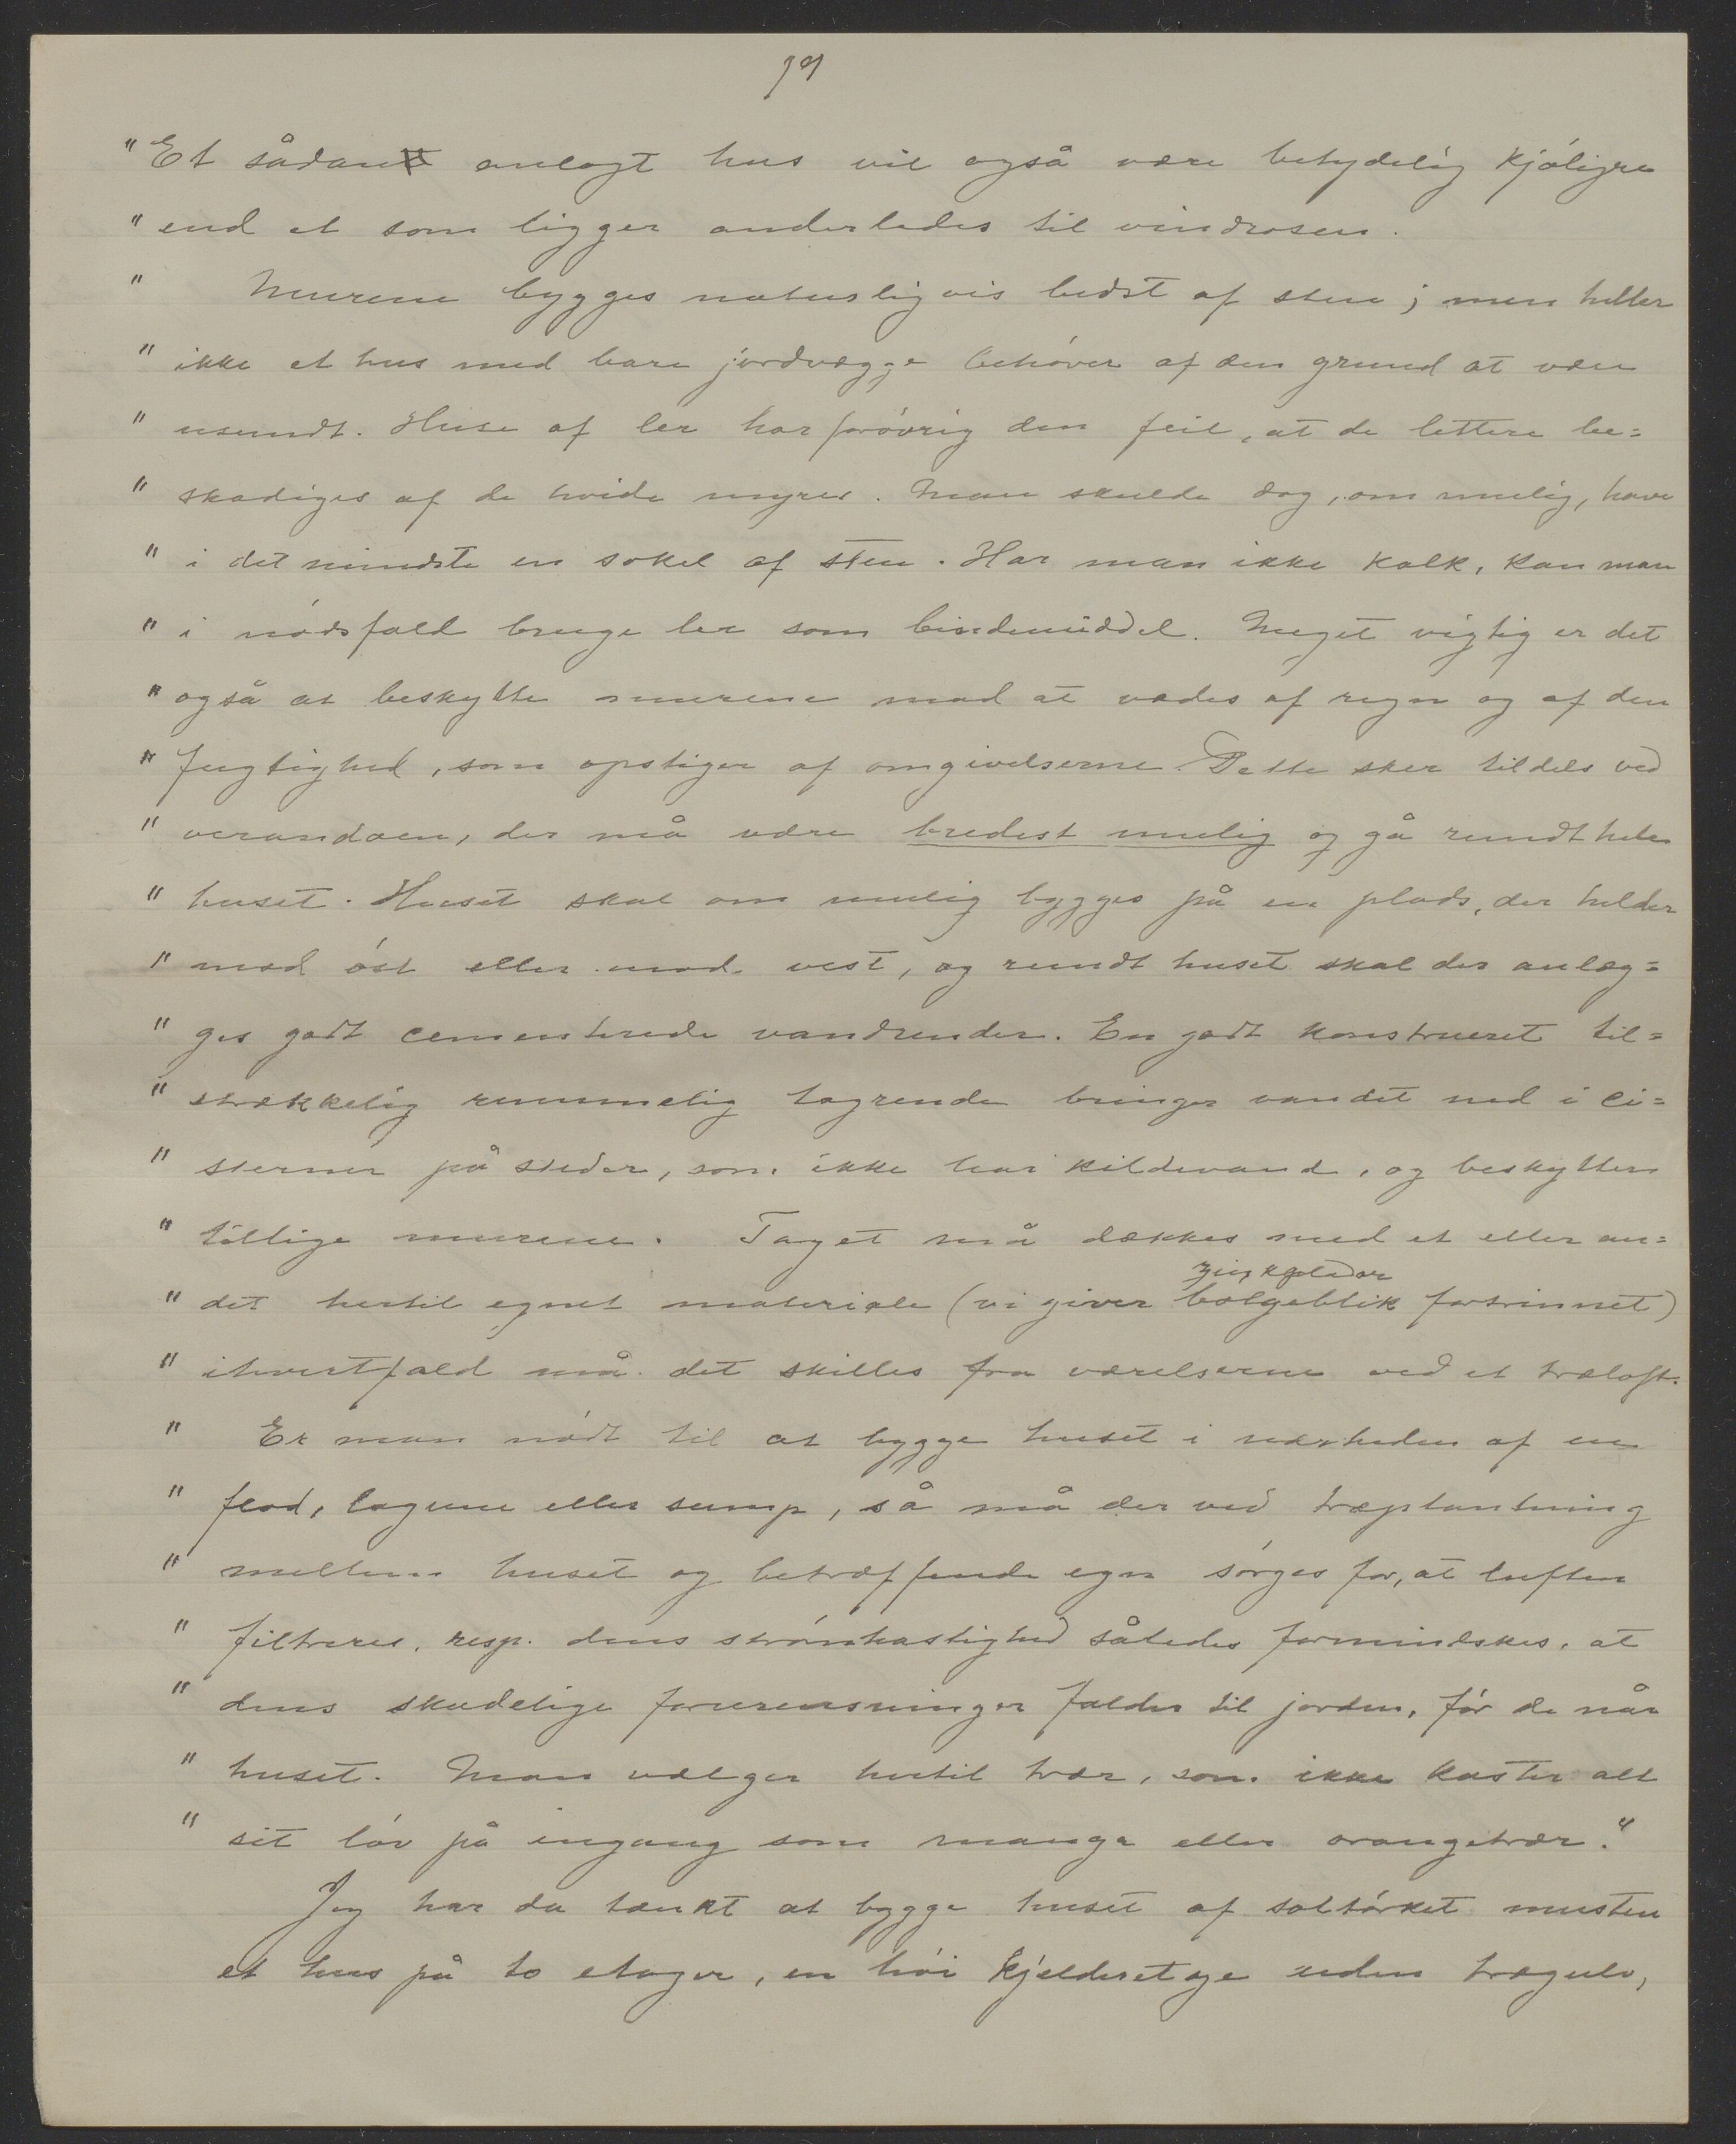 "Et sådant anlagt hus vil også være betydelig kjöligre
" end et som ligger anderledes til vindrosen.
" Murene bygges naturligvis bedst af sten; men heller
" ikke et hus med bare jordvægge behöver af den grund at være
" usundt. Huse af ler har forövrig den feil, at de lettere be=
" skadiges af de hvide myrer. Man skulde dog, om mulig, have
" i det mindste en sokel af sten. Har man ikke kalk, kan man
" i nödsfald bruge ler som bindemiddel. Meget vigtig er det
" også at beskytte murene mod at vædes af regn og af den
" fugtighed, som opstiger af omgivelserne. Dette sker tildels ved
" verandaen, der må være bredest mulig og gå rundt hele
" huset. Huset skal om mulig bygges på en plads, der helder
" mod öst eller mod vest, og rundt huset skal der anlæg=
" ges godt cementerede vandrender. En godt konstrueret til=
" strækkelig rummelig tagrende bringer vandet ned i ci=
" sterner på steder, som ikke har kildevand, og beskytter
" tillige murene. Taget må dækkes med et eller an=
zinkplader
" det hertil egnet materiale (vi giver bølgeblik fortrinnet)
" ihvertfald må det skilles fra værelserne ved et træloft.
" Er man nödt til at bygge huset i nærheden af en
" flod, lagune eller sump, så må der ved træplantning
" mellem huset og betræffende egn sörges for, at luften
" filtreres, resp. dens strömhastighed således formindskes, at
" dens skadelige forurensninger falder til jorden, för de når
" huset. Man vælger hertil trær, som ikke kaster alt
" sit löv på engang som mango eller orangetrær."
Jeg har da tænkt at bygge huset af soltörket mursten
et hus på to etager, en höi kjelderetage uden trægulv,